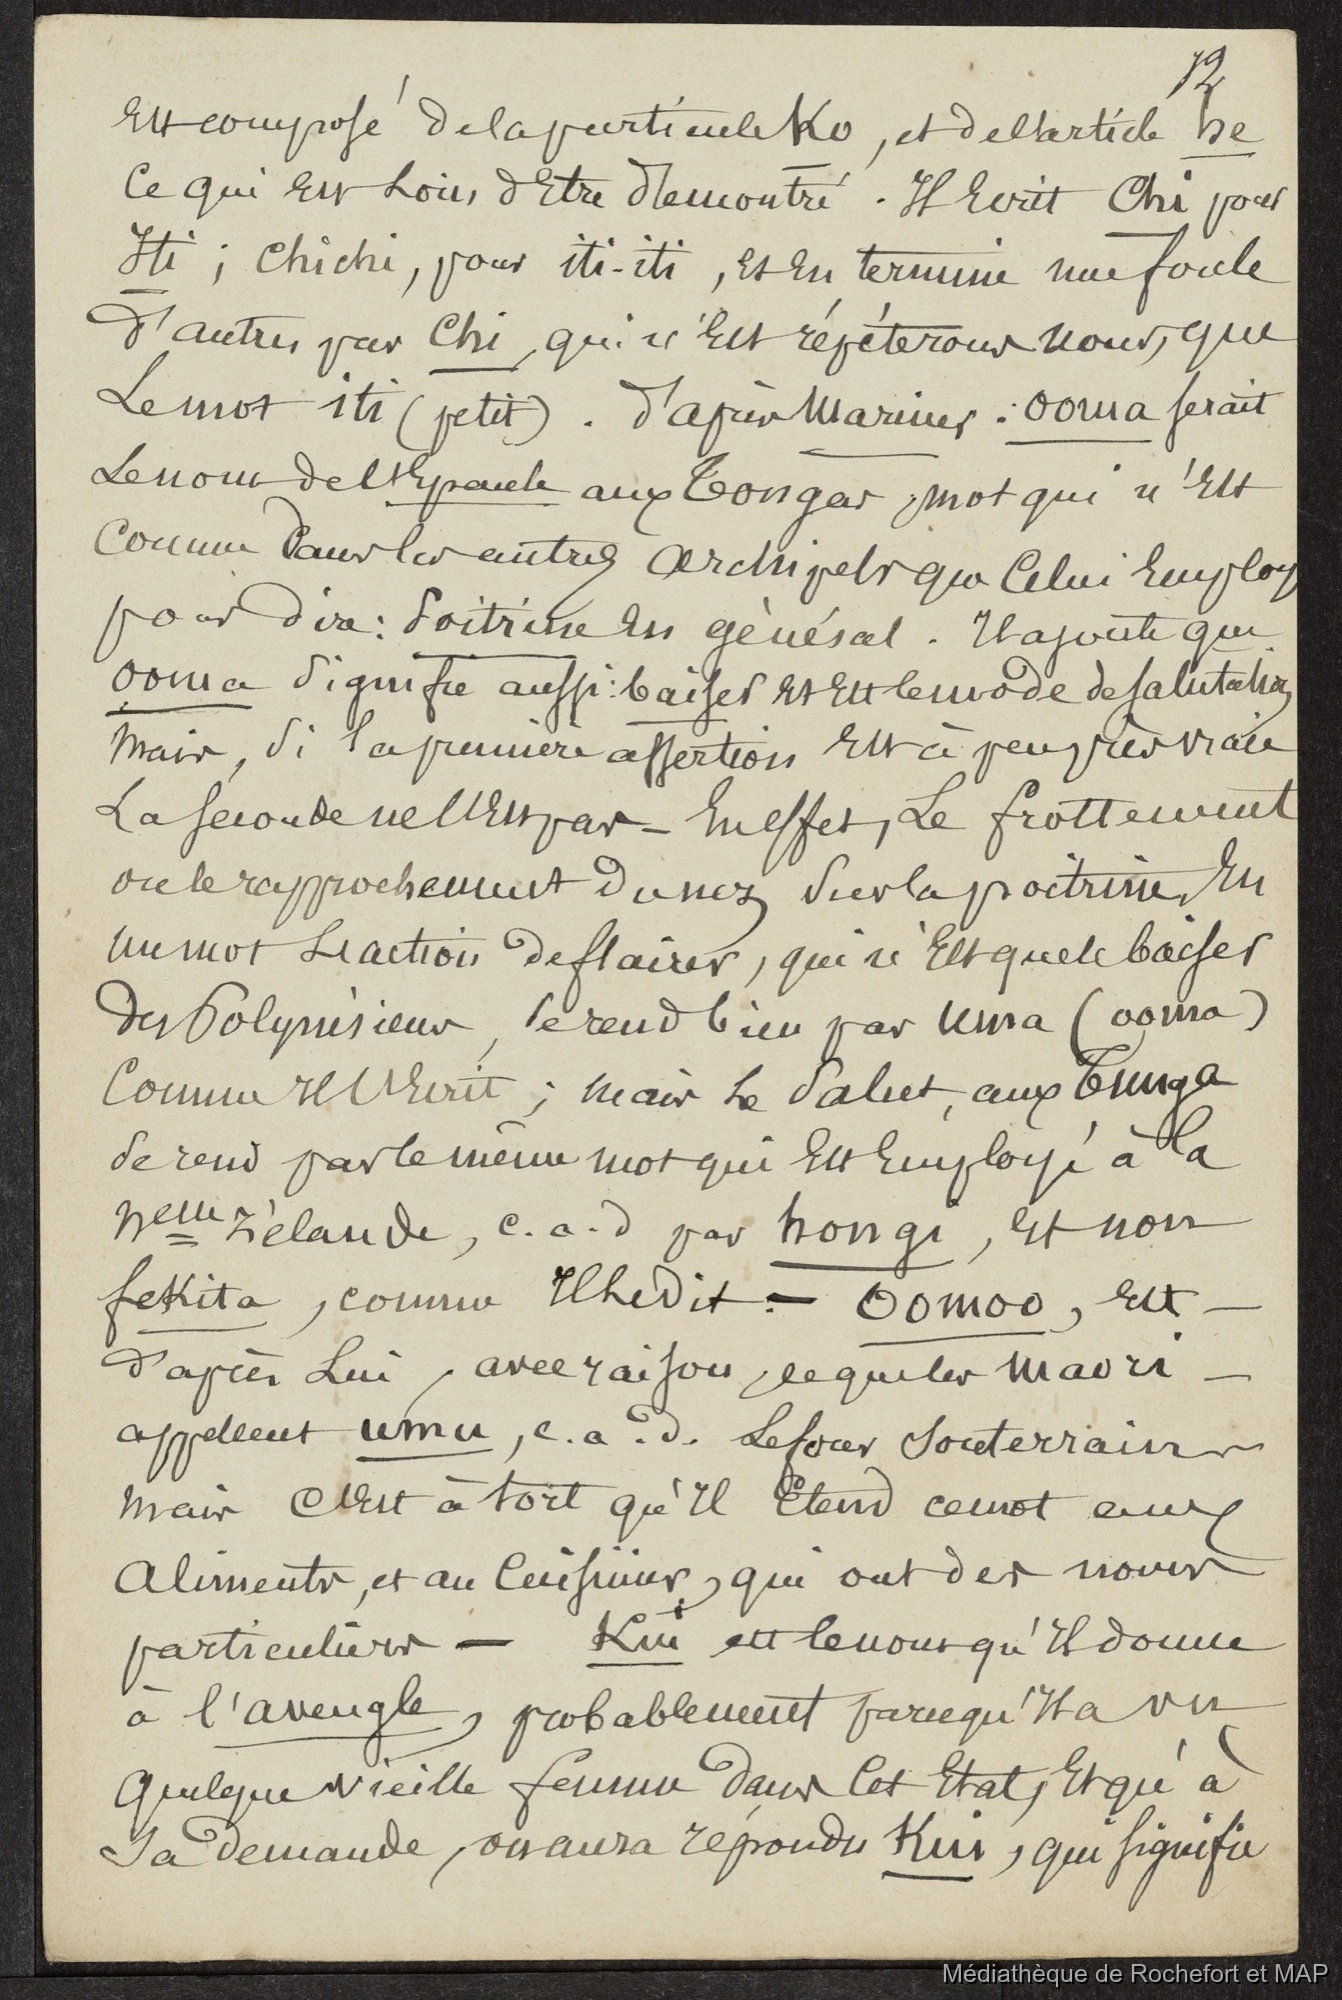 12
Est composé de la particule Ko, et de l'article he
Ce qui Est Loin d'Etre démontré. Il Ecrit Chi pour
Iti ; Chichi, pour iti-iti, Et En termine une foule
d'autres par Chi, qui n'Est répéterons nous, que
Le mot iti (petit). d'après Mariner : Ooma serait
Le nom de l'Epaule aux Tongas, mot qui n'Est
Connu dans les autres Archipels que Celui Employé
pour dire : Poitrine En général. Il ajoute que
ooma signifie aussi : baiser Et Est le mode de salutation,
Mais, si la première assertion Est à peu près vraie
La seconde ne l'Est pas - En effet, Le frottement
ou le rapprochement du nez sur la poitrine, En
un mot L'action de flairer, qui n'Est que le baiser
des Polynésiens, se rend bien par Uma (ooma)
Comme Il l'Ecrit ; mais Le Salut, aux Tunga
se rend par le même mot qui Est Employé à la
Nelle Zélande, c.a.d par hongi, Et non
feKita, comme Il le dit. - Oomoo, Est -
d'après Lui, avec raison, ce que les Maori -
appellent umu, c.a.d. Le four Souterrain
Mais C'Est à tort qu'Il Etend ce mot aux
Aliments, et au Cuisinier, qui ont des noms
particuliers - Kui est le nom qu'Il donne
à l'aveugle, probablement parce qu'Il a vu
Quelque vieille femme dans Cet Etat, Et qu'à
Sa demande, on aura répondu Kui, qui signifie
Médiathèque de Rochefort et MAP